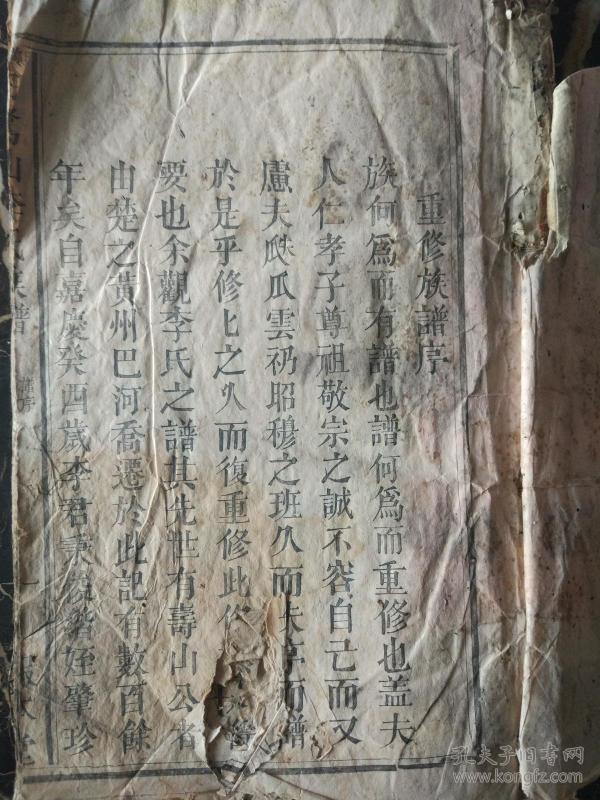 重修族譜序
族何爲而有譜也譜何爲而重修也盖夫
人仁孝子尊祖敬宗之誠不容自已而又
慮夫瓞瓜雲礽昭穆之班久而失序而譜
於是乎修匕之久而復重修此
要也余觀李氏之譜其先世有壽山公者
由楚之黄州巴河喬遷於此記有數百餘
年矣自嘉慶癸酉歲李君秉 偕姪肇珍
氏族譜
孔夫子旧书网
www.kongfz.com